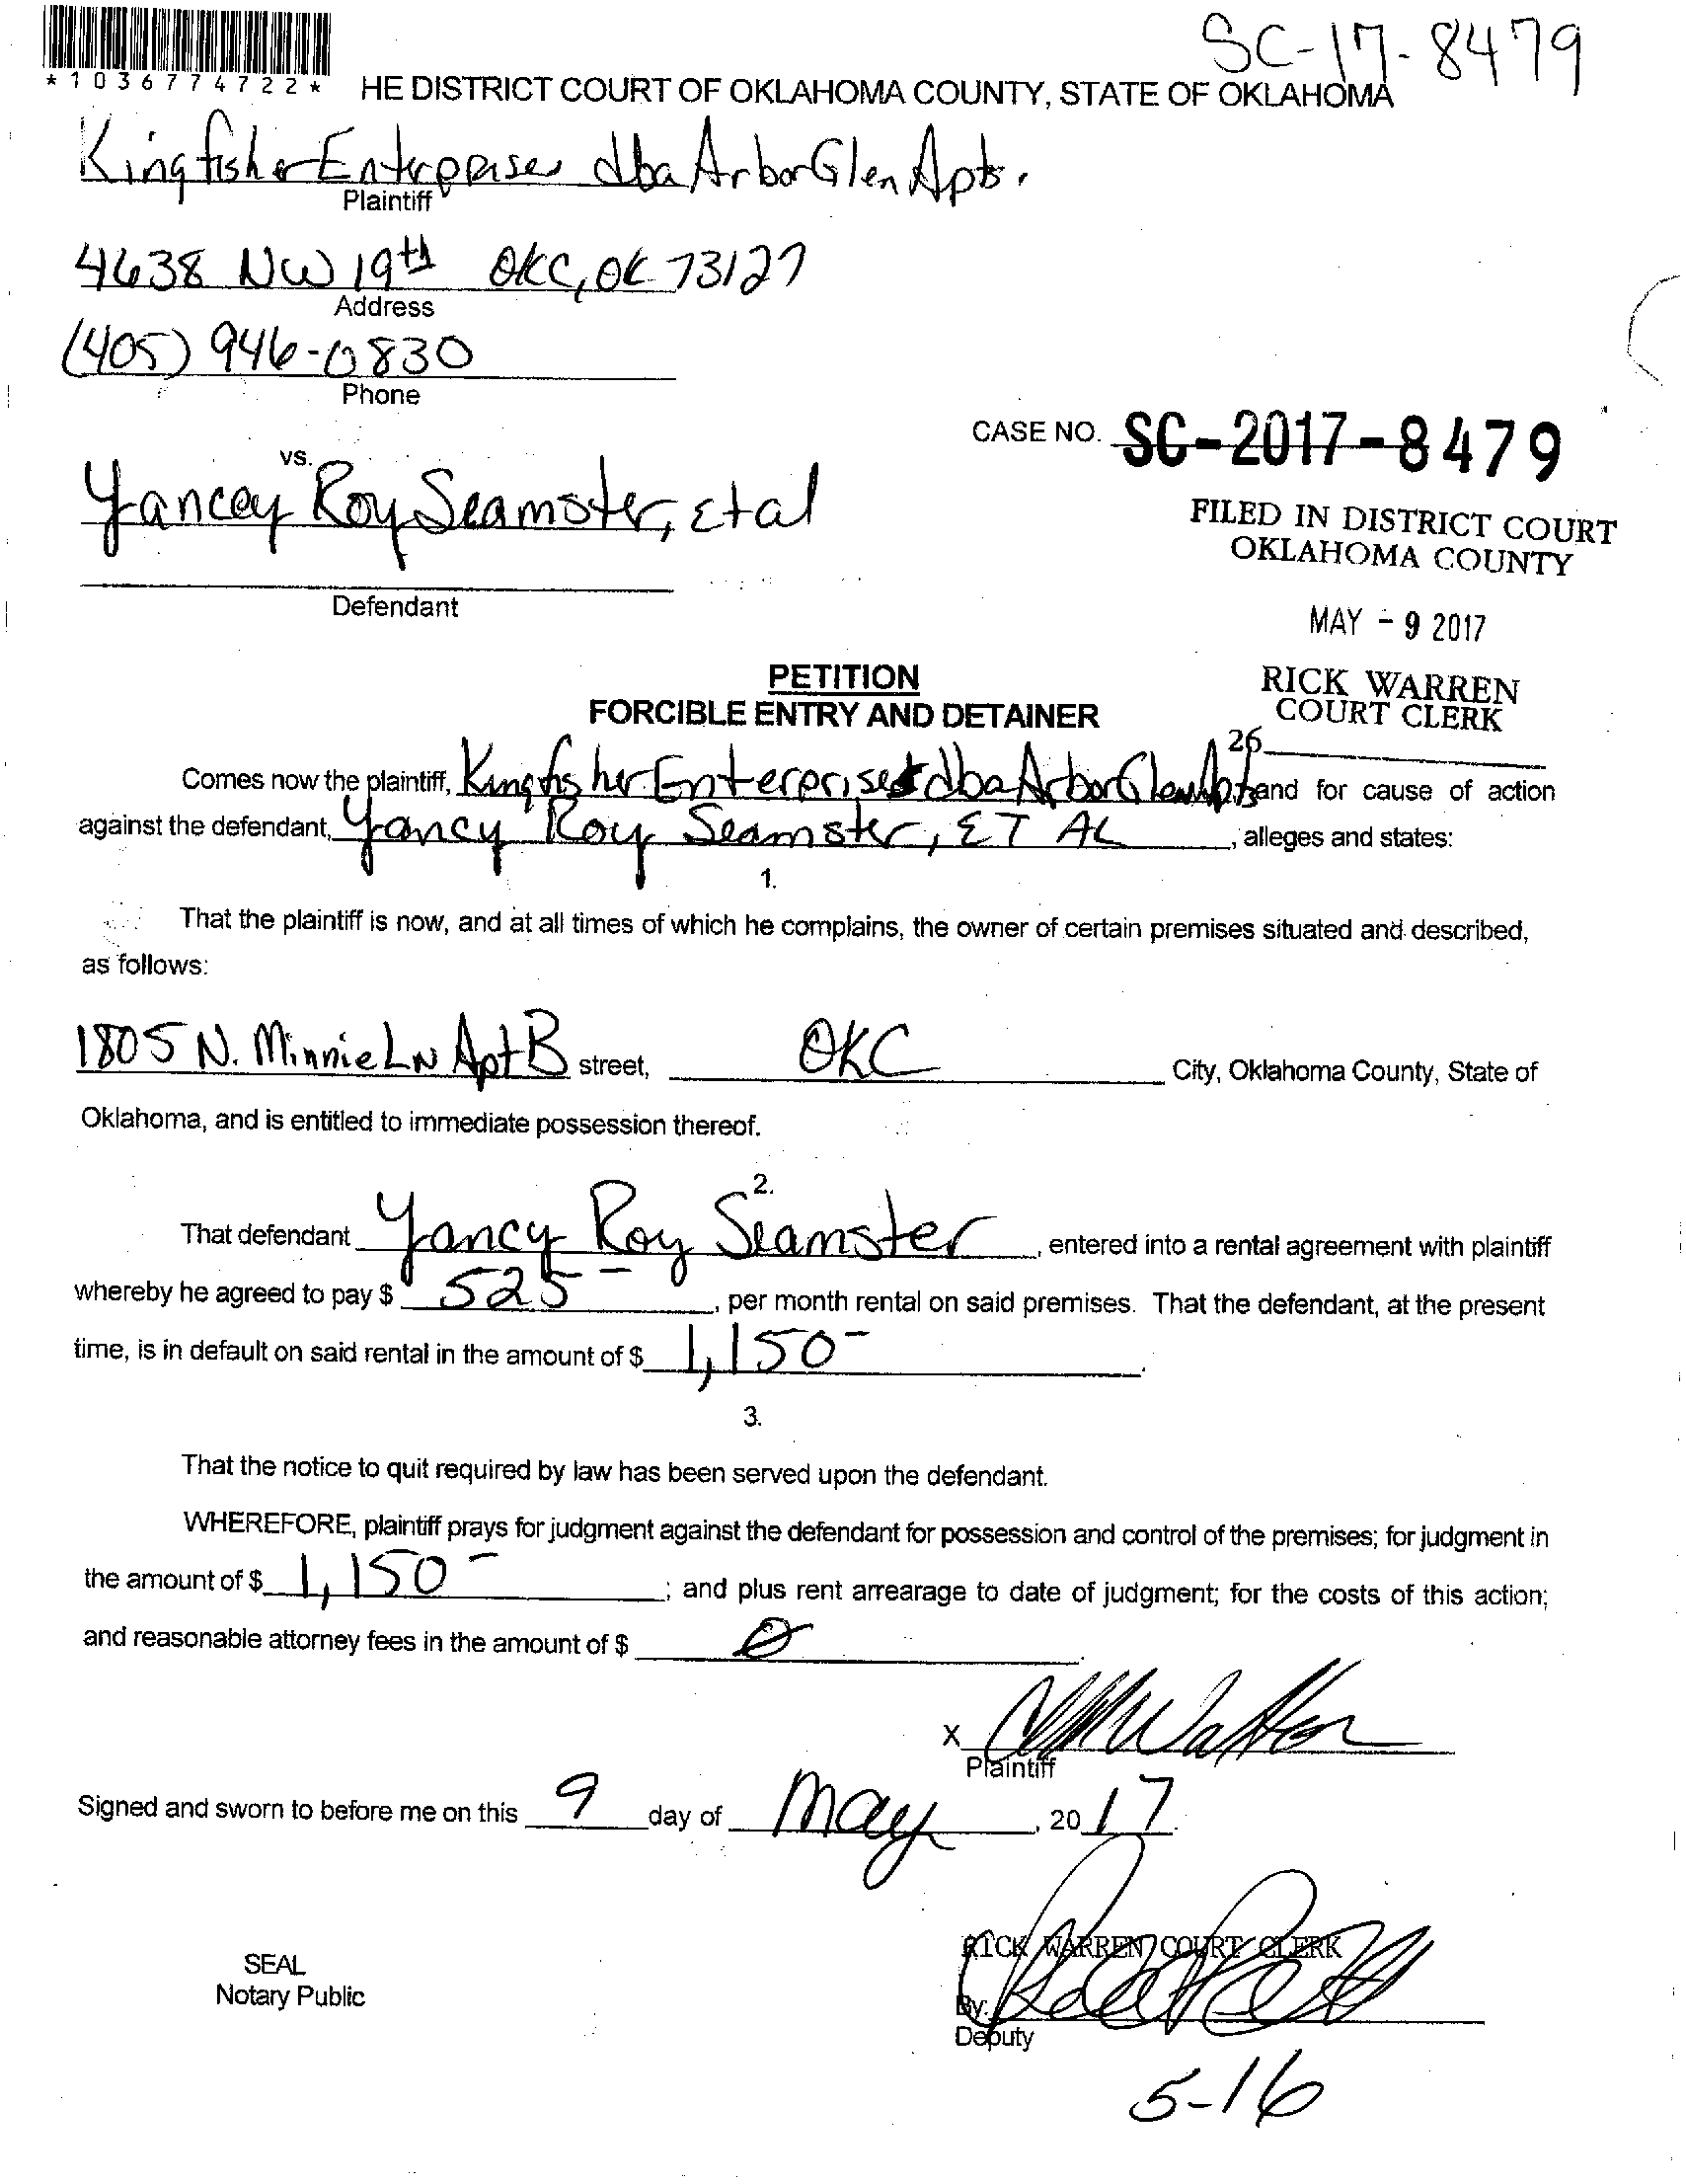 SC-17-8479
*1036774722*
HE DISTRICT COURT OF OKLAHOMA COUNTY, STATE OF OKLAHOMA
Kingfisher Enterprises dba Arbor Glen Apts.
Plaintiff
4638 NW 19th OKC, OK 73127
Address
(405) 946-0830
Phone
CASE NO. SC-2017-8479
vs.
Yancey Roy Seamster, Etal
FILED IN DISTRICT COURT
OKLAHOMA COUNTY
Defendant
MAY - 9 2017
PETITION
RICK WARREN
COURT CLERK
FORCIBLE ENTRY AND DETAINER
26
Comes now the plaintiff, Kingfisher Enterprises dba Arbor Glen Apts and for cause of action
against the defendant, Yancy Roy Seamster, ET AL, alleges and states:
1.
That the plaintiff is now, and at all times of which he complains, the owner of certain premises situated and described,
as follows:
1805 N. Minnie LN Apt B street, OKC City, Oklahoma County, State of
Oklahoma, and is entitled to immediate possession thereof.
2.
That defendant Yancy Roy Seamster, entered into a rental agreement with plaintiff
whereby he agreed to pay $ 525-, per month rental on said premises. That the defendant, at the present
time, is in default on said rental in the amount of $ 1,150-.
3.
That the notice to quit required by law has been served upon the defendant.
WHEREFORE, plaintiff prays for judgment against the defendant for possession and control of the premises; for judgment in
the amount of $ 1,150-; and plus rent arrearage to date of judgment; for the costs of this action;
and reasonable attorney fees in the amount of $ 0.
X
Plaintiff
Signed and sworn to before me on this 9 day of May, 2017.
RICK WARREN, COURT CLERK
SEAL
Notary Public
By:
Deputy
5-16